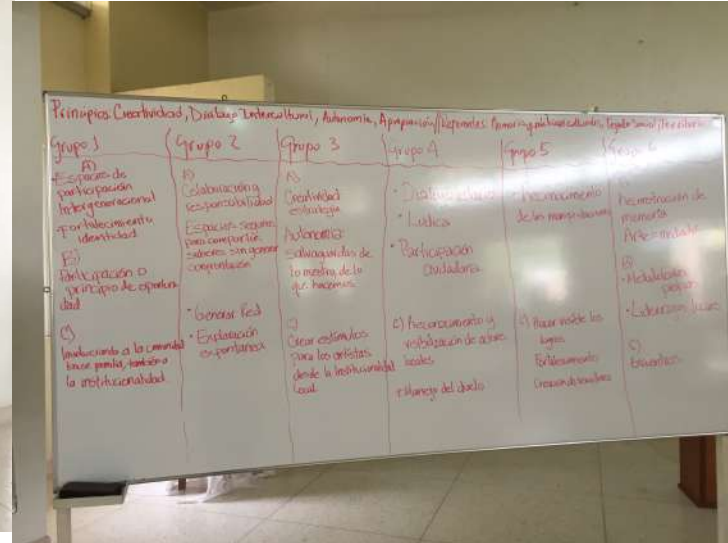 Principios: Creatividad, Dialogo Intercultural, Autonomía, Apropiación // Referentes: Memoria y políticas culturales, Tejido Social, Territorio
Grupo 1
A)
Espacios de
participación
Intergeneracional
fortalecimiento
identidad
B)
Participación o
principio de oportuni
dad
C)
Involucrando a la comunidad
base familia, también a
la institucionalidad.
Grupo 2
A)
Colaboración y
responsabilidad
Espacios seguros
para compartir
saberes sin generar
confrontación
• Generar Red
• Exploración
espontanea
Grupo 3
A)
Creatividad
estrategia
Autonomía:
salvaguardas de
lo nuestro, de lo
que hacemos.
C)
Crear estímulos
para los artistas
desde la Institucionalidad
Local
Grupo 4
• Dialogo
• Ludica
• Participación
ciudadana
C) Reconocimiento y
visibilización de actores
locales
• Manejo del duelo
Grupo 5
• Reconocimiento
de las manifestaciones
C) Hacer visible los
logros
Fortalecimiento
Creación de
Grupo 6
Reconstrucción de
memoria
Arte
B)
• Metodología
propia
• Liderazgos locales
C)